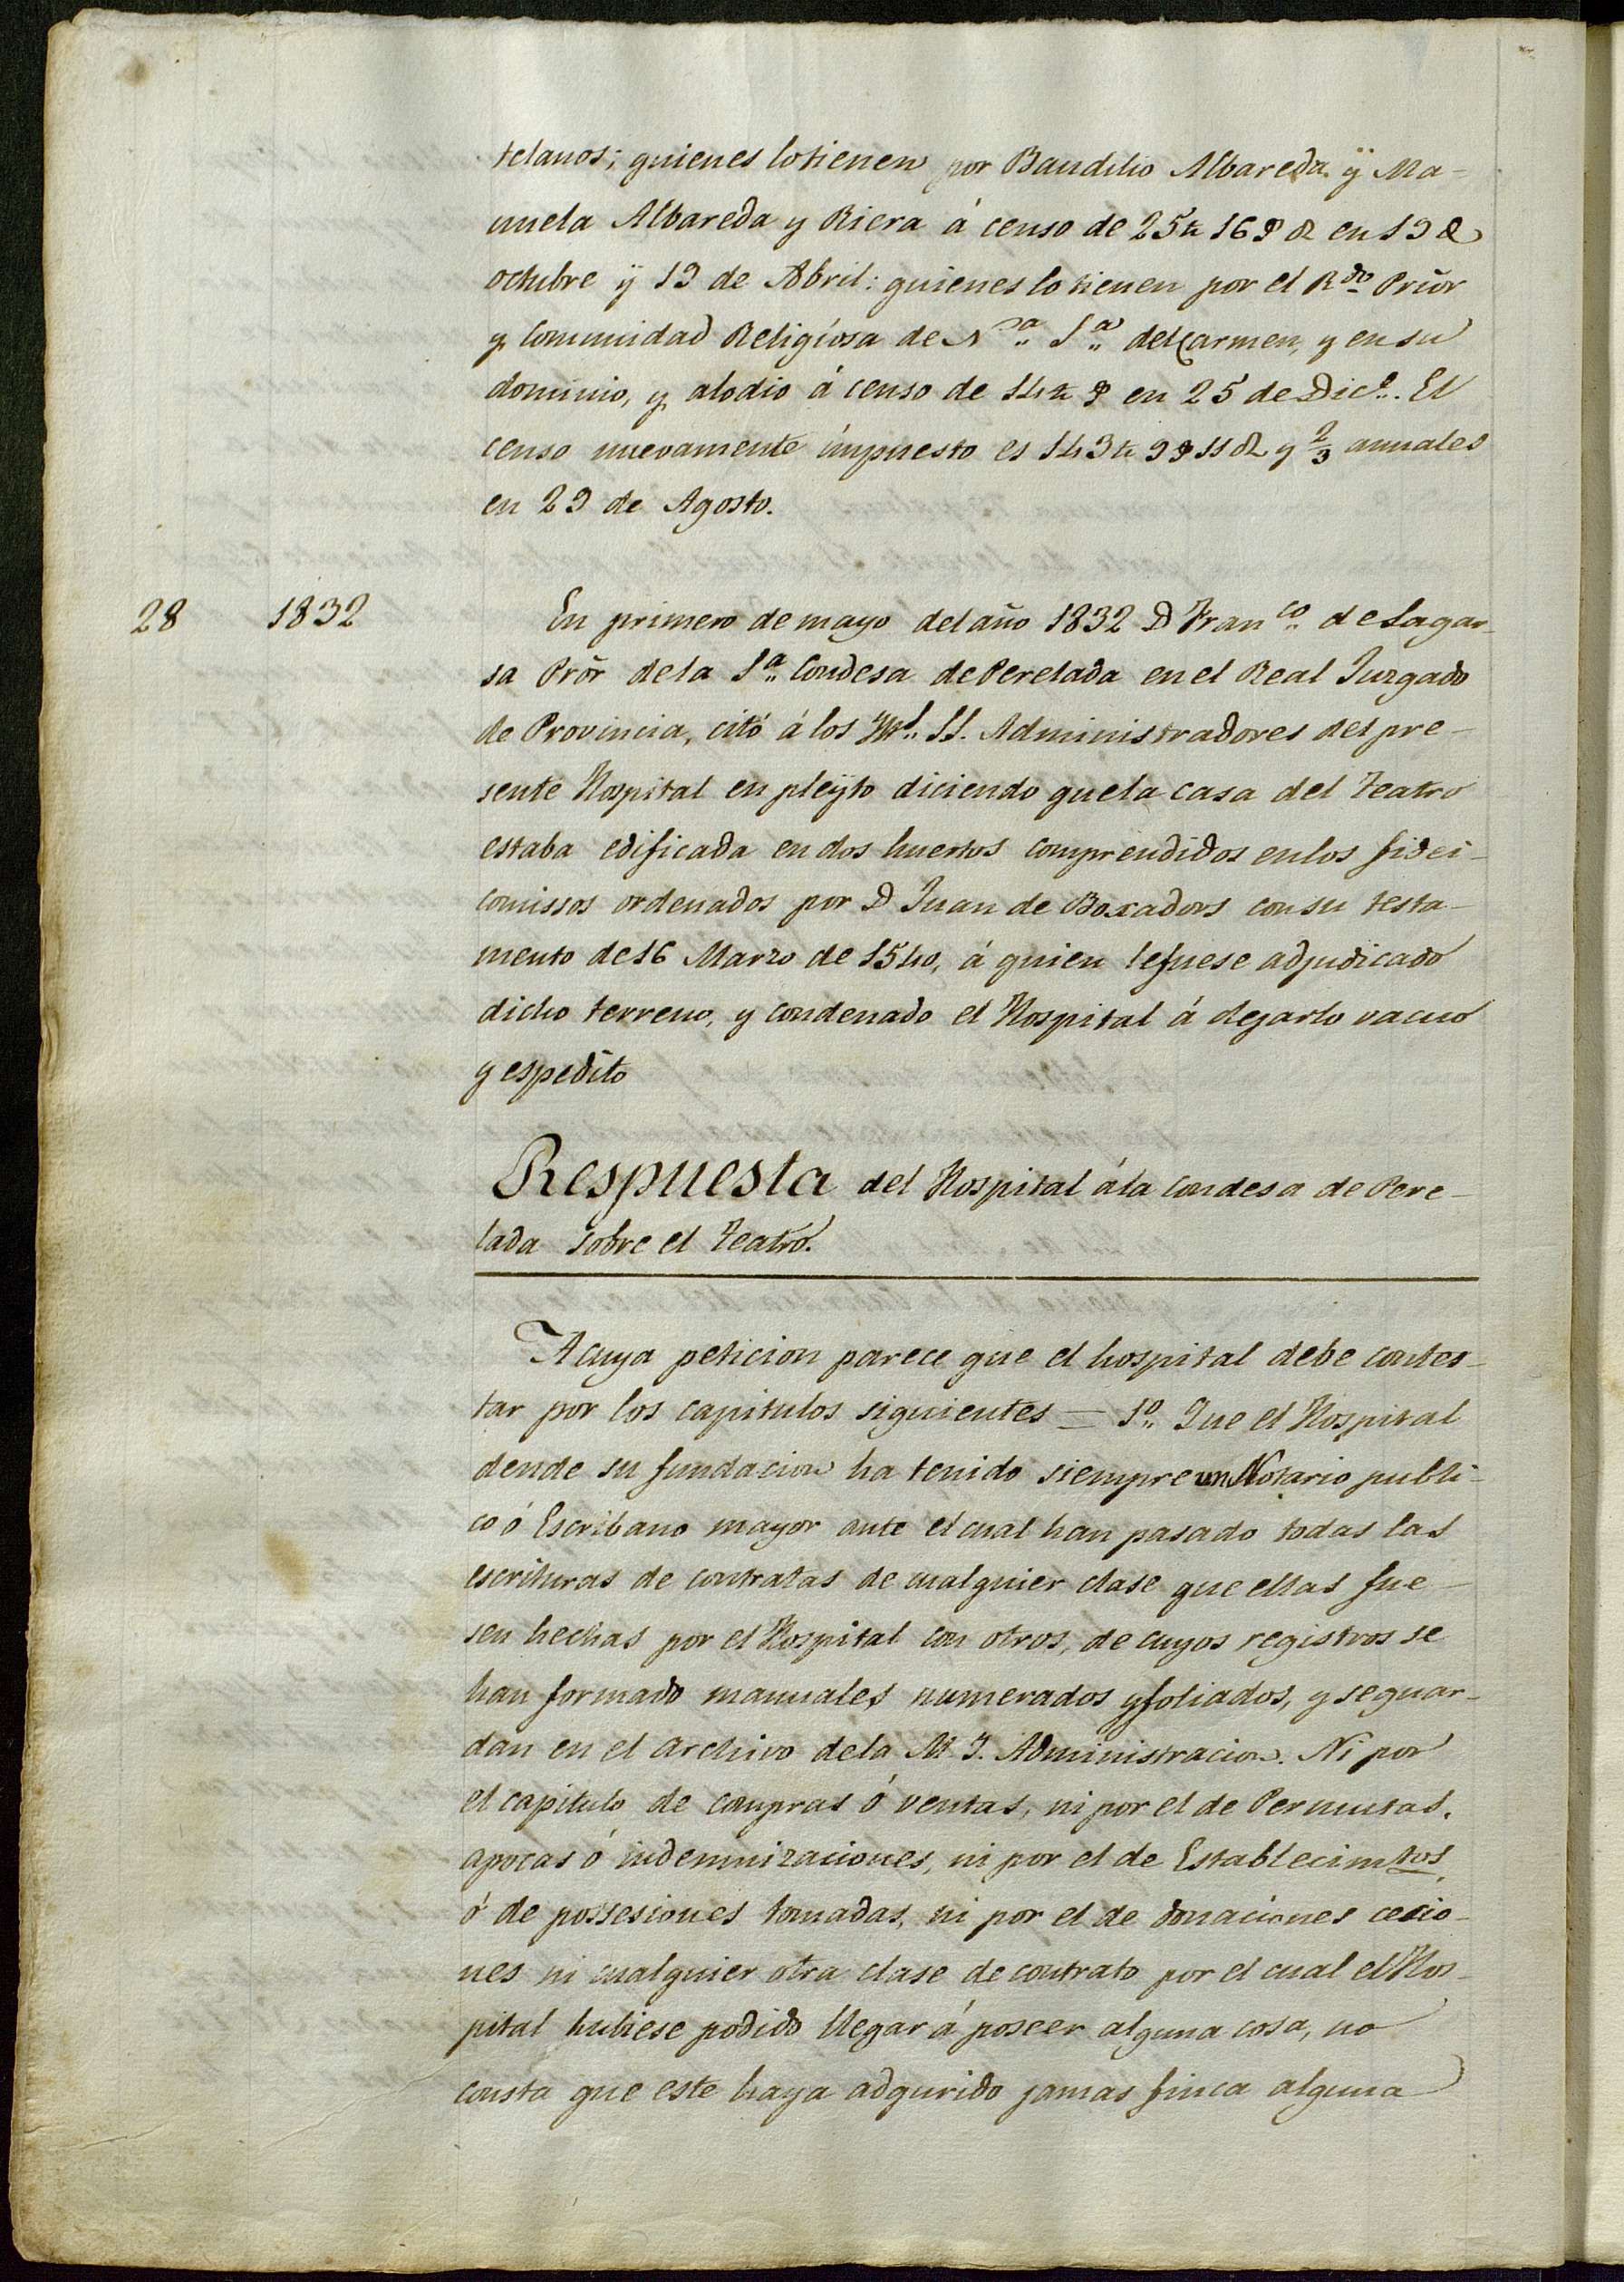 telanos; quienes lo tienen por Baudilio Albareda ÿ Ma-
nuela Albareda y Riera á censo de 25 16 en 19 de
octubre ÿ 19 de Abril: quienes lo tienen por el Rdo Prior
y Comunidad Religiosa de Na Sa del Carmen, y en su
dominio, y alodio á censo de 14 en 25 de Dice. El
censo nuevamente impuesto es 143 9 11 y 2/3 annuales
en 29 de Agosto.
28 1832 En primero de mayo del año 1832 D Franco de Lagar-
sa Prõr de la Sa Condesa de Perelada en el Real Juzgado
de Provincia, citó á los SS. Administradores del pre-
sente Hospital en pleÿto diciendo que la casa del Teatro
estaba edificada en dos huertos comprendidos en los fidei-
comissos ordenados por D Juan de Boxadors con su testa-
mento de 16 Marzo de 1540, á quien le fuese adjudicado
dicho terreno, y condenado el Hospital á dejarlo vacuo
y espedito
Respuesta del Hospital á la condesa de Pere-
lada sobre el Teatro.
A cuya peticion parece que el hospital debe contes-
tar por los capitulos siguientes = 1o Que el Hospital
dende su fundacion ha tenido siempre un Notario publi-
co ó Escribano mayor ante el cual han pasado todas las
escrituras de contratas de cualquier clase que ellas fue-
sen hechas por el Hospital con otros, de cuyos registros se
han formado manuales numerados y foliados, y se guar-
dan en el archivo de la M. I. Administracion. Ni por
el capitulo de compras ó ventas, ni por el de Permutas,
apocas ó indemnizaciones, ni por el de Establecimtos,
ó de possesiones tomadas, ni por el de donaciones cecio-
nes ni cualquier otra clase de contrato por el cual el Hos-
pital hubiese podido llegar á poseer alguna cosa, no
consta que este haya adqurido jamas finca alguna